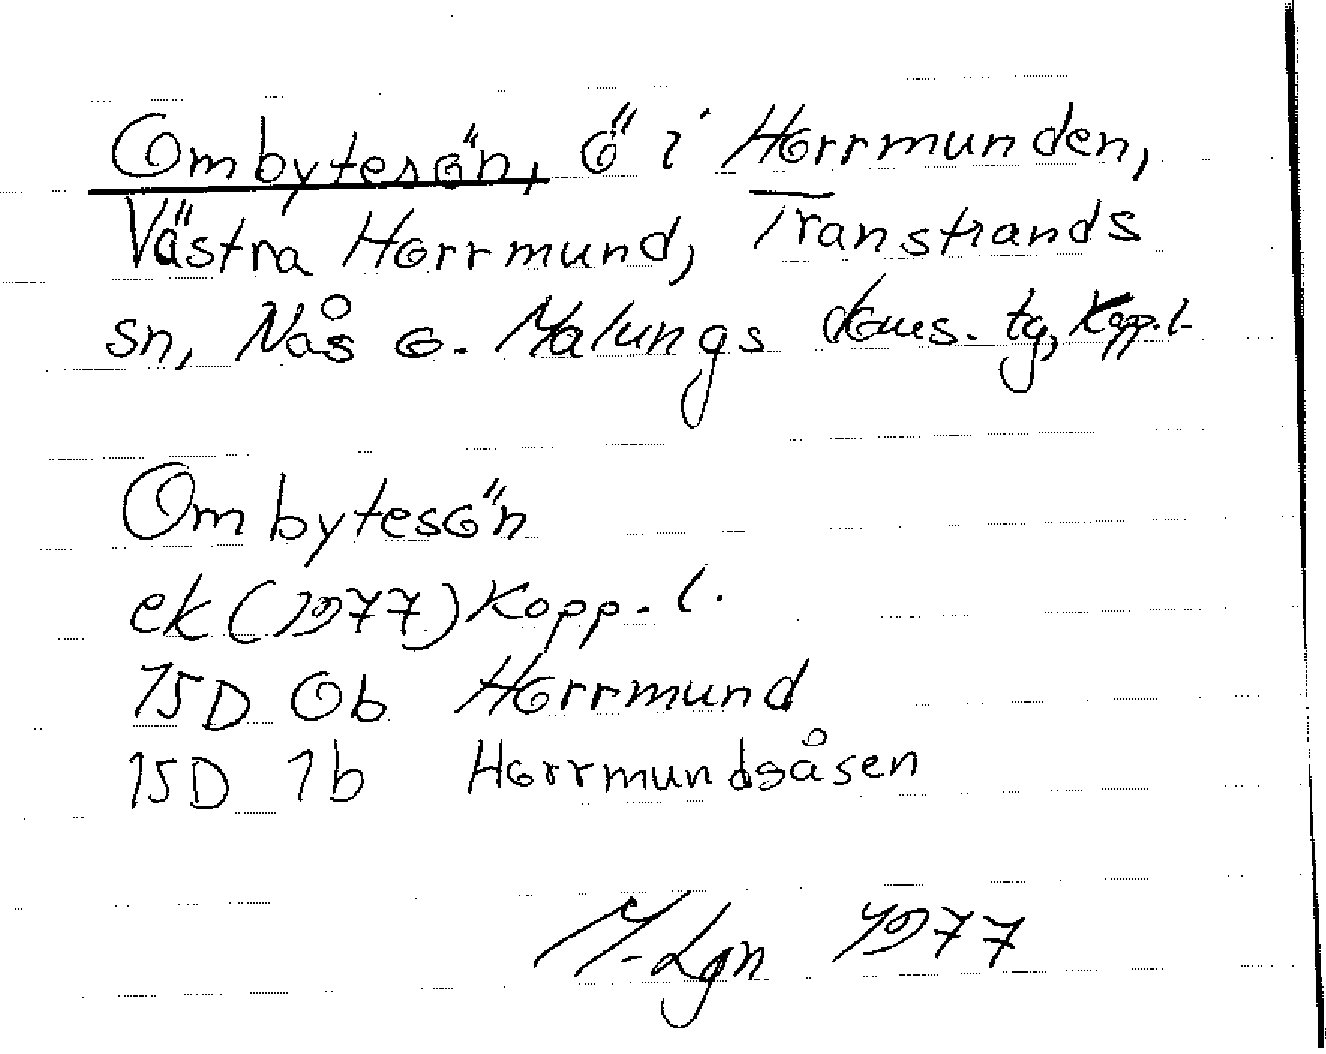 Ombytesön, ö i Horrmunden,
Västra Horrmund, Transtrands
sn, Nås o. Malungs doms. tg, Kopp. l.
Ombytesön
ek (1977) Kopp. l.
15D 0b Horrmund
15D 1b Horrmundsåsen
M-Lgn 1977